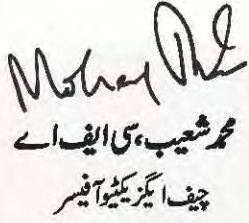 محمد شعیب، سی ایف اے
چیف ایگزیکٹیو آفیسر